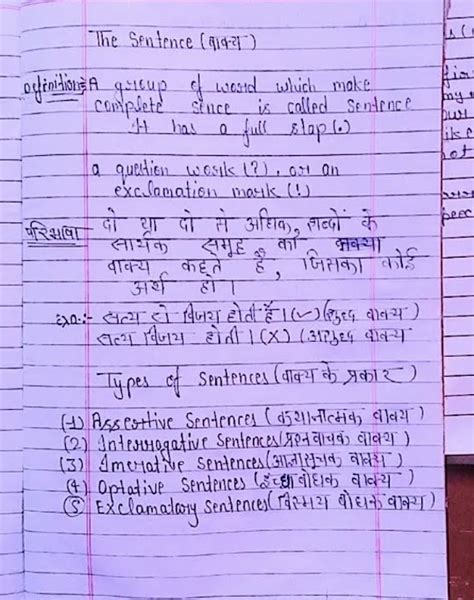 The Sentence (वाक्य)
Definition:- A group of word which make
complete since is called Sentence
It has a full stap (.)
a question work (?), or an
exclamation mark (!)
परिभाषा दो या दो से अधिक, शब्दों के
सार्थक समूह को
वाक्य कहते है, जिसका कोई
अर्थ हो।
Exa:- सत्य की विजय होती है। (✓) (शुद्ध वाक्य)
सत्य विजय होती। (X) (अशुद्ध वाक्य
Types of Sentences (वाक्य के प्रकार)
(1) Assertive Sentences (कथानात्मक वाक्य)
(2) Interrogative Sentences (प्रश्नवाचक वाक्य)
(3) Imerative Sentences (आज्ञासूचक वाक्य)
(4) Optative Sentences (इच्छा बोधक वाक्य)
(5) Exclamatory Sentences (विस्मय बोधक वाक्य)